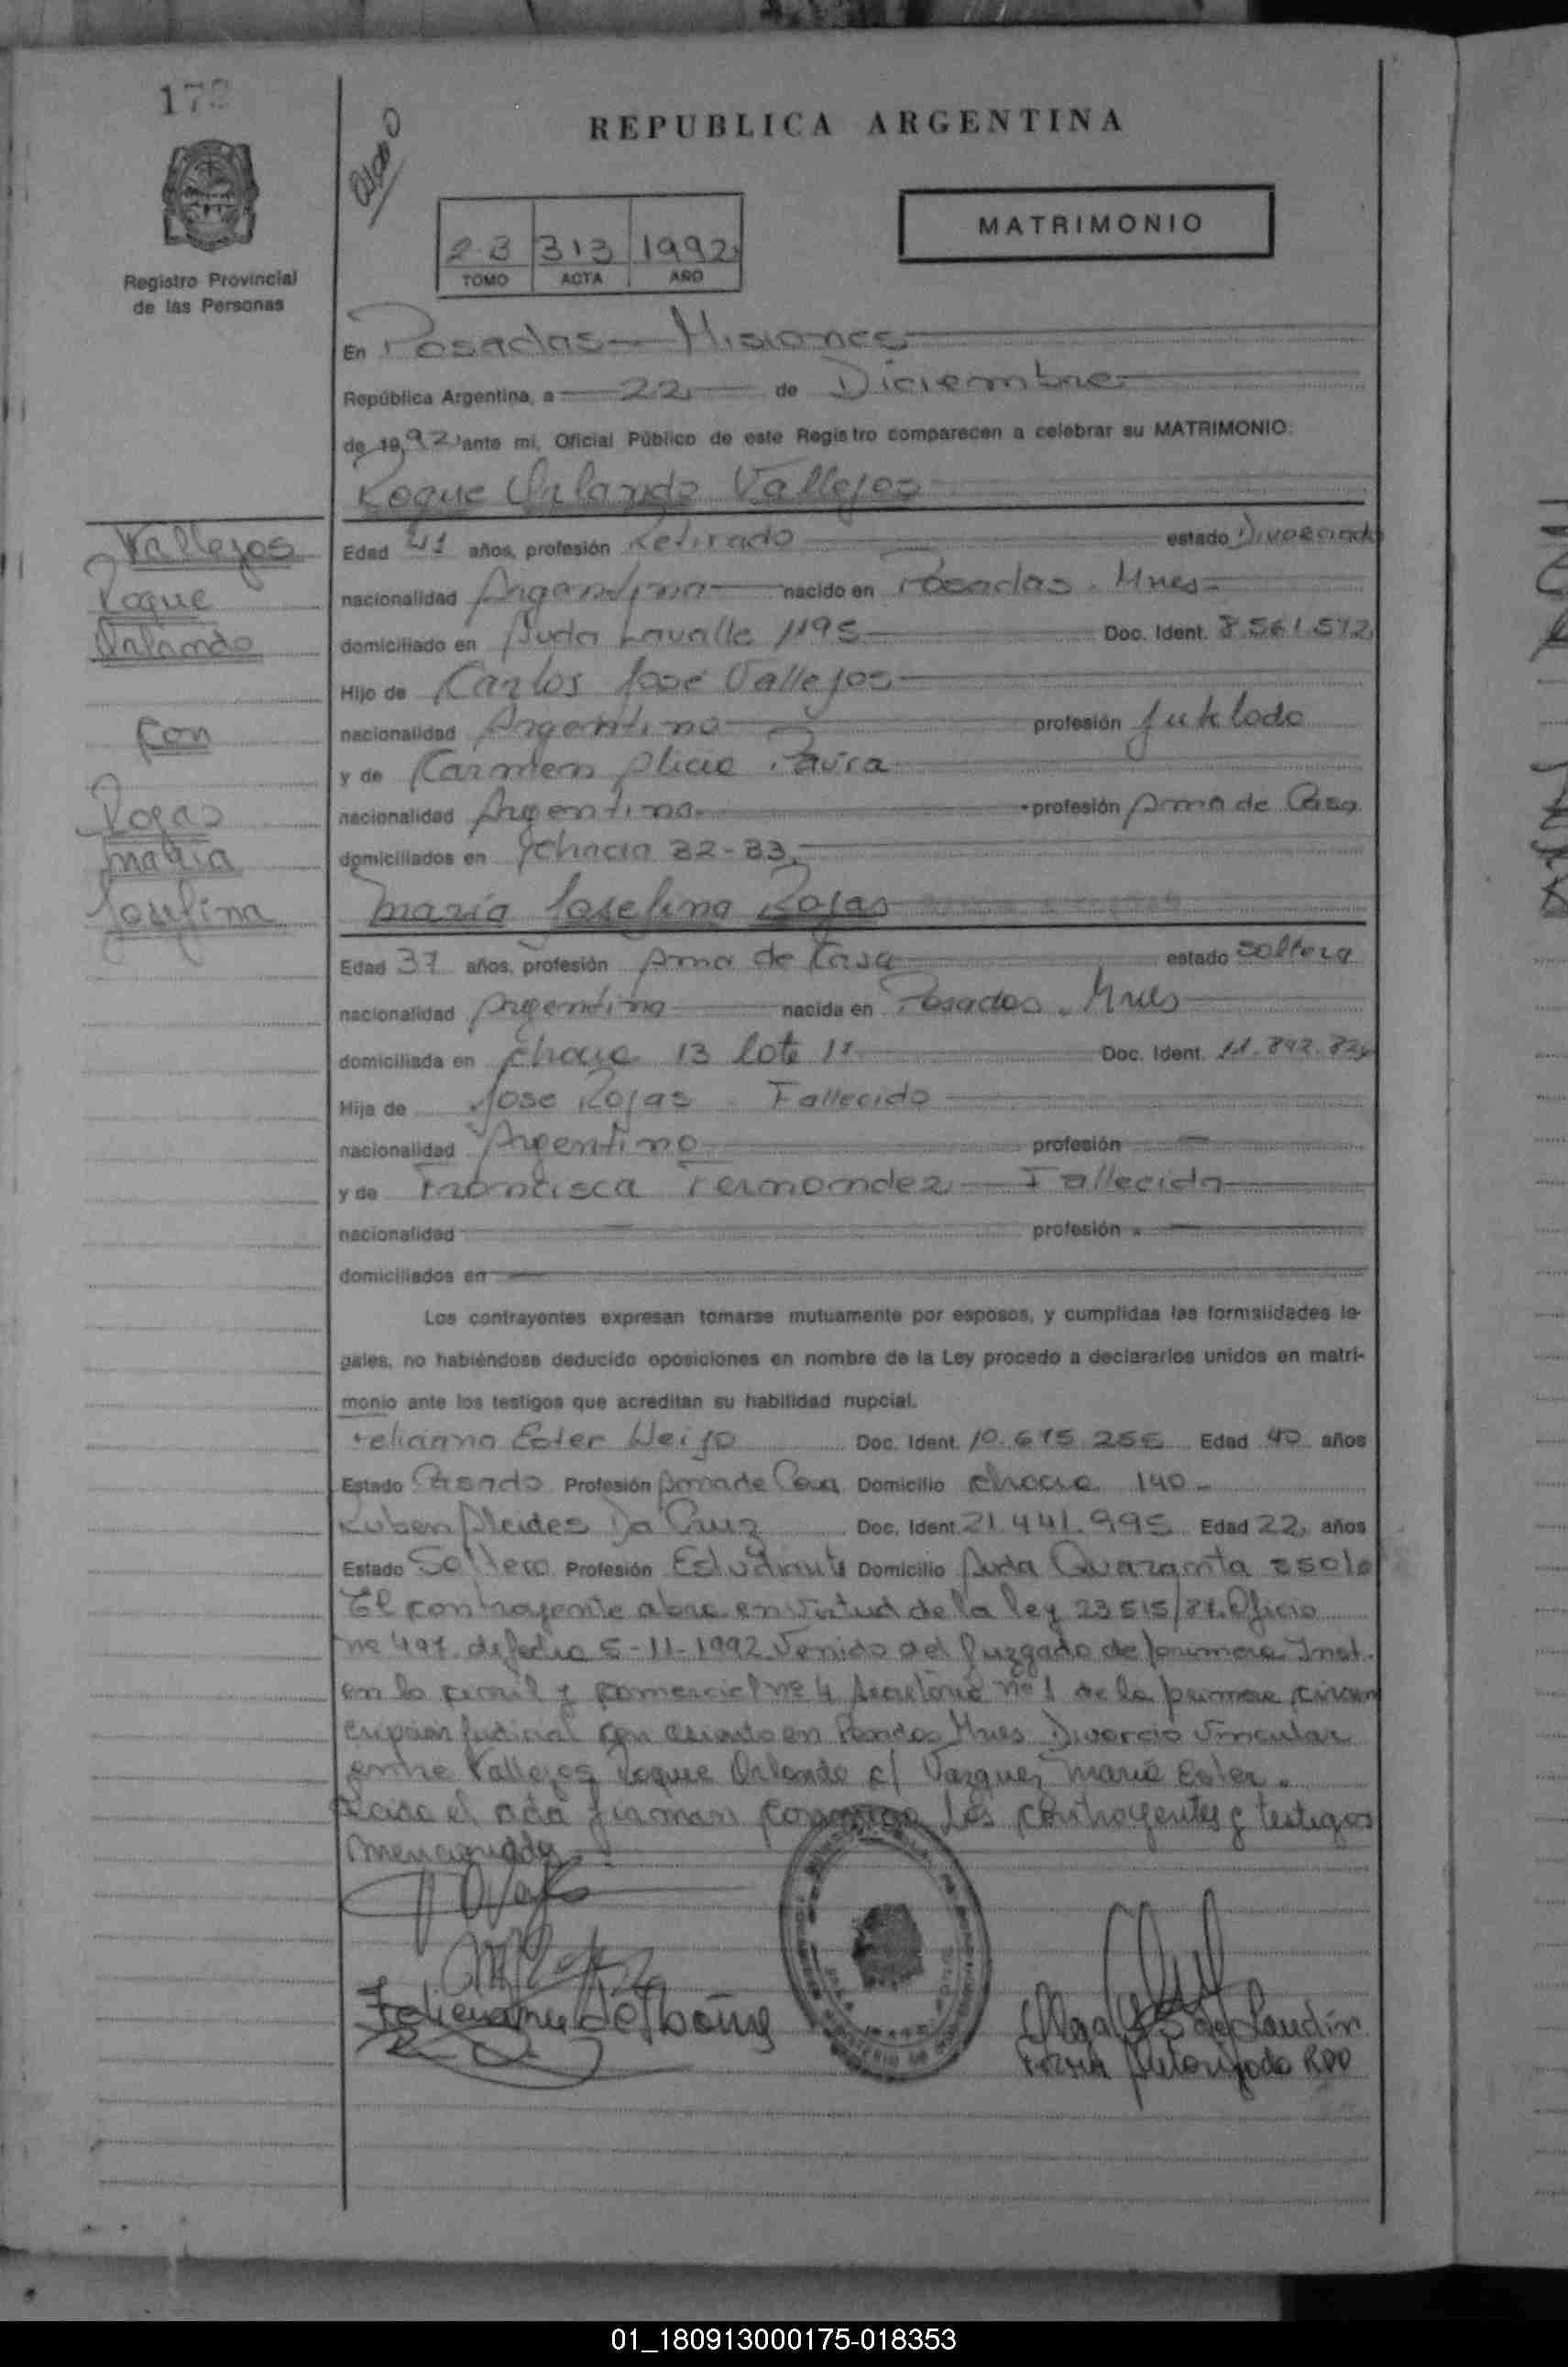 REPUBLICA ARGENTINA
MATRIMONIO
Registro Provincial
de las Personas
2-B 313 1992
TOMO ACTA AÑO
En Posadas Misiones
República Argentina, a 22 de Diciembre
de 1992 ante mí, Oficial Público de este Registro comparecen a celebrar su MATRIMONIO:
Roque Orlando Vallejos
Vallejos
Roque
Orlando
con
Rojas
maria
Josefina
Edad 41 años, profesión Retirado estado Divorciado
nacionalidad Argentina nacido en Posadas - Mnes
domiciliado en Avda Lavalle 1195 Doc. Ident. 8.561.512
Hijo de Carlos José Vallejos
nacionalidad Argentino profesión Jubilado
y de Carmen Alicia
nacionalidad Argentina profesión Ama de Casa
domiciliados en Chacra 32-33
maria Josefina Rojas
Edad 37 años, profesión Ama de Casa estado Soltera
nacionalidad Argentina nacida en Posadas - Mnes
domiciliada en Chacra 13 lote 11 Doc. Ident.
Hija de Jose Rojas - Fallecido
nacionalidad Argentino profesión —
y de Francisca Fernandez — Fallecida
nacionalidad — profesión —
domiciliados en —
Los contrayentes expresan tomarse mutuamente por esposos, y cumplidas las formalidades le-
gales, no habiéndose deducido oposiciones en nombre de la Ley procedo a declararlos unidos en matri-
monio ante los testigos que acreditan su habilidad nupcial.
Ester Doc. Ident. 10.615.256 Edad 40 años
Estado Casado Profesión ama de Casa Domicilio chacra 140 -
Ruben Alcides Da Cruz Doc. Ident. 21.441.995 Edad 22 años
Estado Soltero Profesión Estudiante Domicilio Avda Quaranta
El contrayente en virtud de la ley 23515/87. Oficio
nº 497 de fecha 5-11-1992 Venido del Juzgado de primera Inst.
en lo civil y comercial nº 4 secretaria nº 1 de la primera circun
cripcion judicial con asiento en Posadas Mnes Divorcio Vincular
entre Vallejos Roque Orlando c/ Vazquez Maria Ester.
Leida el acta firman conmigo los contrayentes y testigos
mencionados
Firma Autorizada RPP
01_180913000175-018353